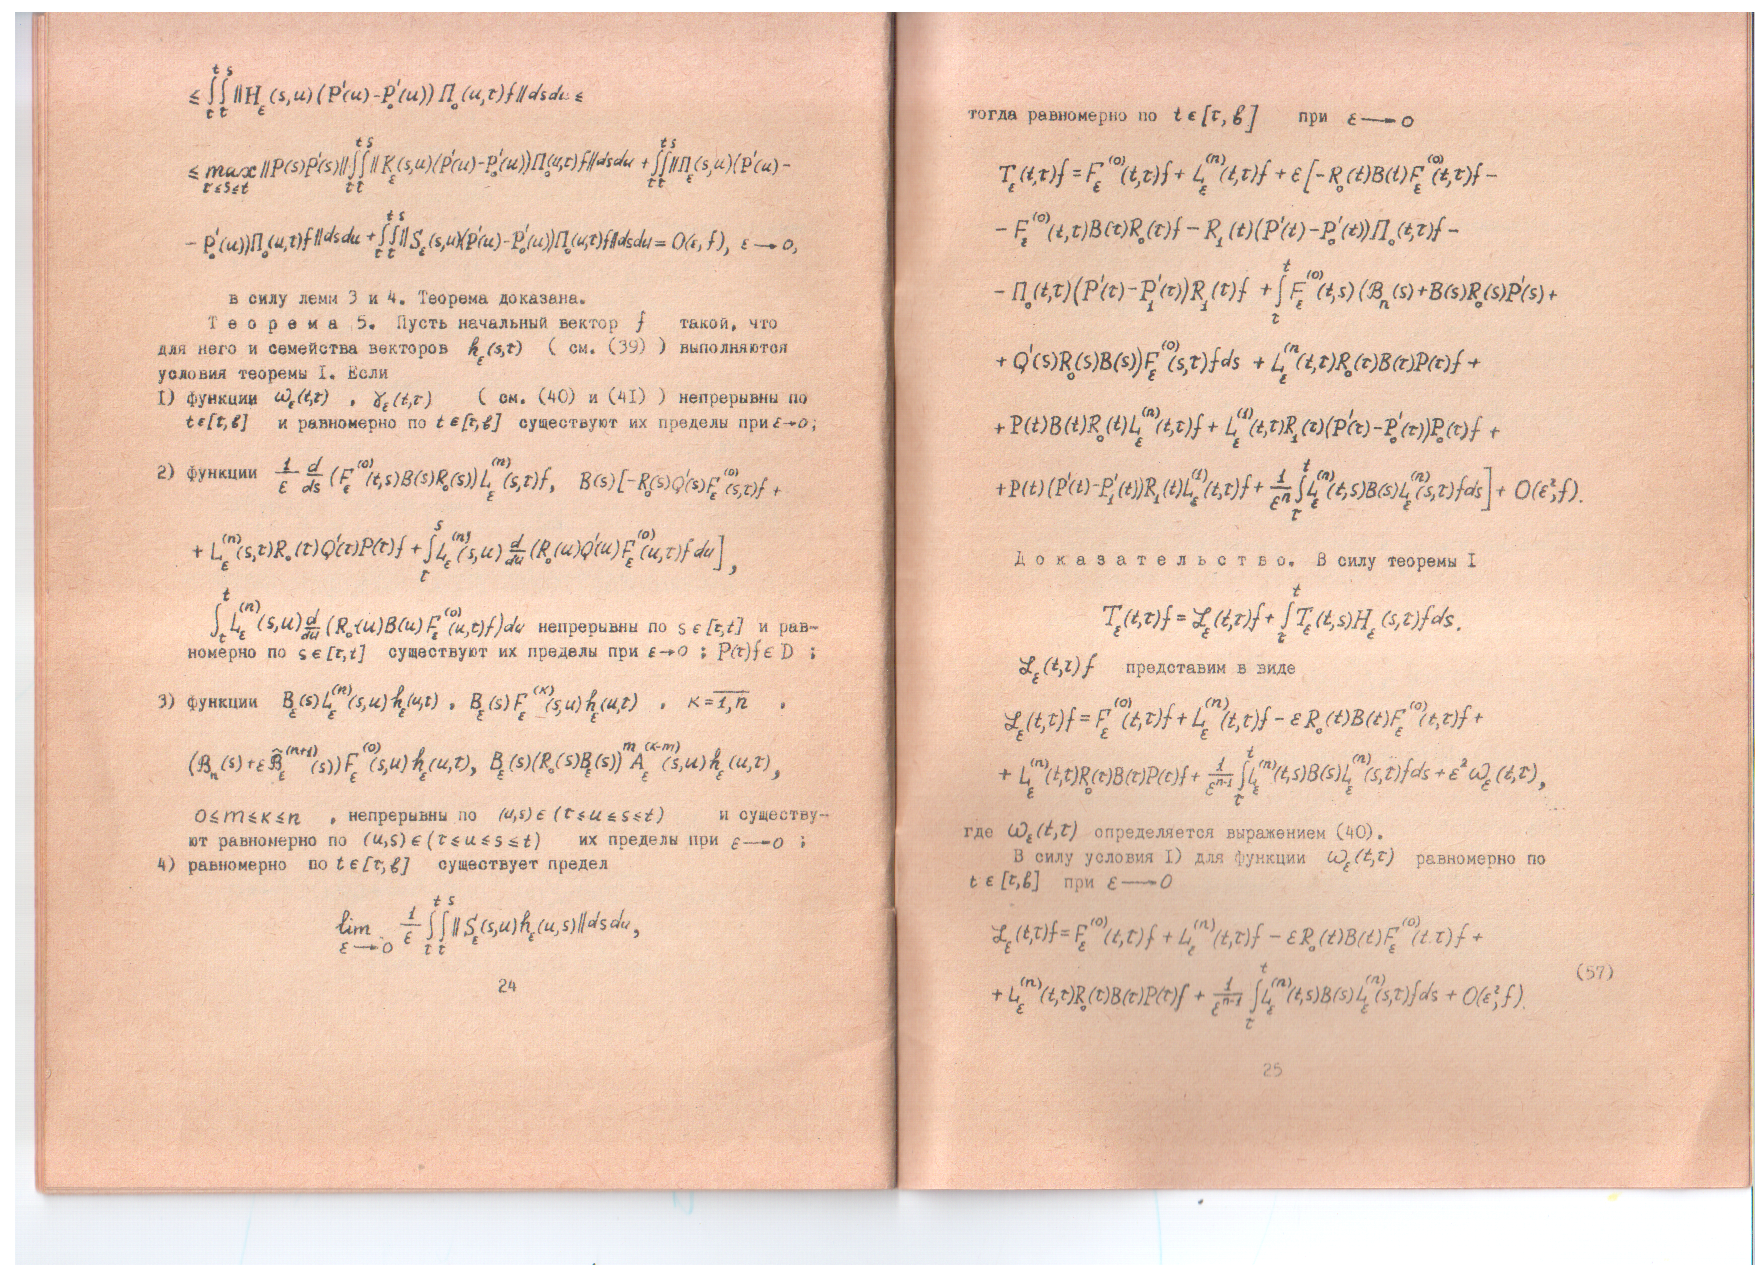 ≤ ∫_τ^t ∫_τ^s ‖H_ε(s,u)(P'(u)-P'_0(u)) Π_0(u,τ)f‖dsdu ≤
≤ max_{τ≤s≤t} ‖P(s)P'(s)‖ ∫_τ^t ∫_τ^s ‖K_ε(s,u)(P'(u)-P'_0(u))Π_0(u,τ)f‖dsdu + ∫_τ^t ∫_τ^s ‖Π_ε(s,u)(P'(u)-
- P'_0(u))Π_0(u,τ)f‖dsdu + ∫_τ^t ∫_τ^s ‖S_ε(s,u)(P'(u)-P'_0(u))Π_0(u,τ)f‖dsdu = O(ε, f), ε→0,
в силу лемм 3 и 4. Теорема доказана.
Т е о р е м а 5. Пусть начальный вектор f такой, что
для него и семейства векторов h_ε(s,τ) ( см. (39) ) выполняются
условия теоремы I. Если
I) функции ω_ε(t,τ) , γ_ε(t,τ) ( см. (40) и (4I) ) непрерывны по
t∈[τ,b] и равномерно по t∈[τ,b] существуют их пределы при ε→0;
2) функции 1/ε d/ds (F_ε^(0)(t,s)B(s)R_0(s))L_ε^(n)(s,τ)f, B(s)[-R_0(s)Q'(s)F_ε^(0)(s,τ)f +
+ L_ε^(n)(s,τ)R_0(τ)Q'(τ)P(τ)f + ∫_τ^s L_ε^(n)(s,u) d/du (R_0(u)Q'(u)F_ε^(0)(u,τ)f du],
∫_τ^t L_ε^(n)(s,u) d/du (R_0(u)B(u)F_ε^(0)(u,τ)f)du непрерывны по s∈[τ,t] и рав-
номерно по s∈[τ,t] существуют их пределы при ε→0 ; P(τ)f∈D ;
3) функции B_ε(s)L_ε^(n)(s,u)h_ε(u,τ) , B_ε(s)F_ε^(κ)(s,u)h_ε(u,τ) , κ=1,n ,
(ℬ_n(s)+εℬ̃_ε^(n+1)(s))F_ε^(0)(s,u)h_ε(u,τ), B_ε(s)(R_0(s)B_ε(s))^m A_ε^(κ-m)(s,u)h_ε(u,τ),
0≤m≤κ≤n , непрерывны по (u,s)∈(τ≤u≤s≤t) и существу-
ют равномерно по (u,s)∈(τ≤u≤s≤t) их пределы при ε→0 ;
4) равномерно по t∈[τ,b] существует предел
lim_{ε→0} 1/ε ∫_τ^t ∫_τ^s ‖S_ε(s,u)h_ε(u,s)‖dsdu,
24
тогда равномерно по t∈[τ,b] при ε→0
T_ε(t,τ)f = F_ε^(0)(t,τ)f + L_ε^(n)(t,τ)f + ε[-R_0(t)B(t)F_ε^(0)(t,τ)f -
- F_ε^(0)(t,τ)B(τ)R_0(τ)f - R_1(t)(P'(t)-P'_0(t))Π_0(t,τ)f -
- Π_0(t,τ)(P'(τ)-P'_1(τ))R_1(τ)f + ∫_τ^t F_ε^(0)(t,s)(ℬ_n(s)+B(s)R_0(s)P'(s)+
+ Q'(s)R_0(s)B(s))F_ε^(0)(s,τ)fds + L_ε^(n)(t,τ)R_0(τ)B(τ)P(τ)f +
+ P(t)B(t)R_0(t)L_ε^(n)(t,τ)f + L_ε^(1)(t,τ)R_1(τ)(P'(τ)-P'_0(τ))P_0(τ)f +
+ P(t)(P'(t)-P'_1(t))R_1(t)L_ε^(1)(t,τ)f + 1/ε^n ∫_τ^t L_ε^(n)(t,s)B(s)L_ε^(n)(s,τ)fds] + O(ε²,f).
Д о к а з а т е л ь с т в о. В силу теоремы I
T_ε(t,τ)f = ℒ_ε(t,τ)f + ∫_τ^t T_ε(t,s)H_ε(s,τ)fds.
ℒ_ε(t,τ)f представим в виде
ℒ_ε(t,τ)f = F_ε^(0)(t,τ)f + L_ε^(n)(t,τ)f - εR_0(t)B(t)F_ε^(0)(t,τ)f +
+ L_ε^(n)(t,τ)R_0(τ)B(τ)P(τ)f + 1/ε^{n-1} ∫_τ^t L_ε^(n)(t,s)B(s)L_ε^(n)(s,τ)fds + ε²ω_ε(t,τ),
где ω_ε(t,τ) определяется выражением (40).
В силу условия I) для функции ω_ε(t,τ) равномерно по
t∈[τ,b] при ε→0
ℒ_ε(t,τ)f = F_ε^(0)(t,τ)f + L_ε^(n)(t,τ)f - εR_0(t)B(t)F_ε^(0)(t,τ)f +
(57)
+ L_ε^(n)(t,τ)R_0(τ)B(τ)P(τ)f + 1/ε^{n-1} ∫_τ^t L_ε^(n)(t,s)B(s)L_ε^(n)(s,τ)fds + O(ε²,f).
25